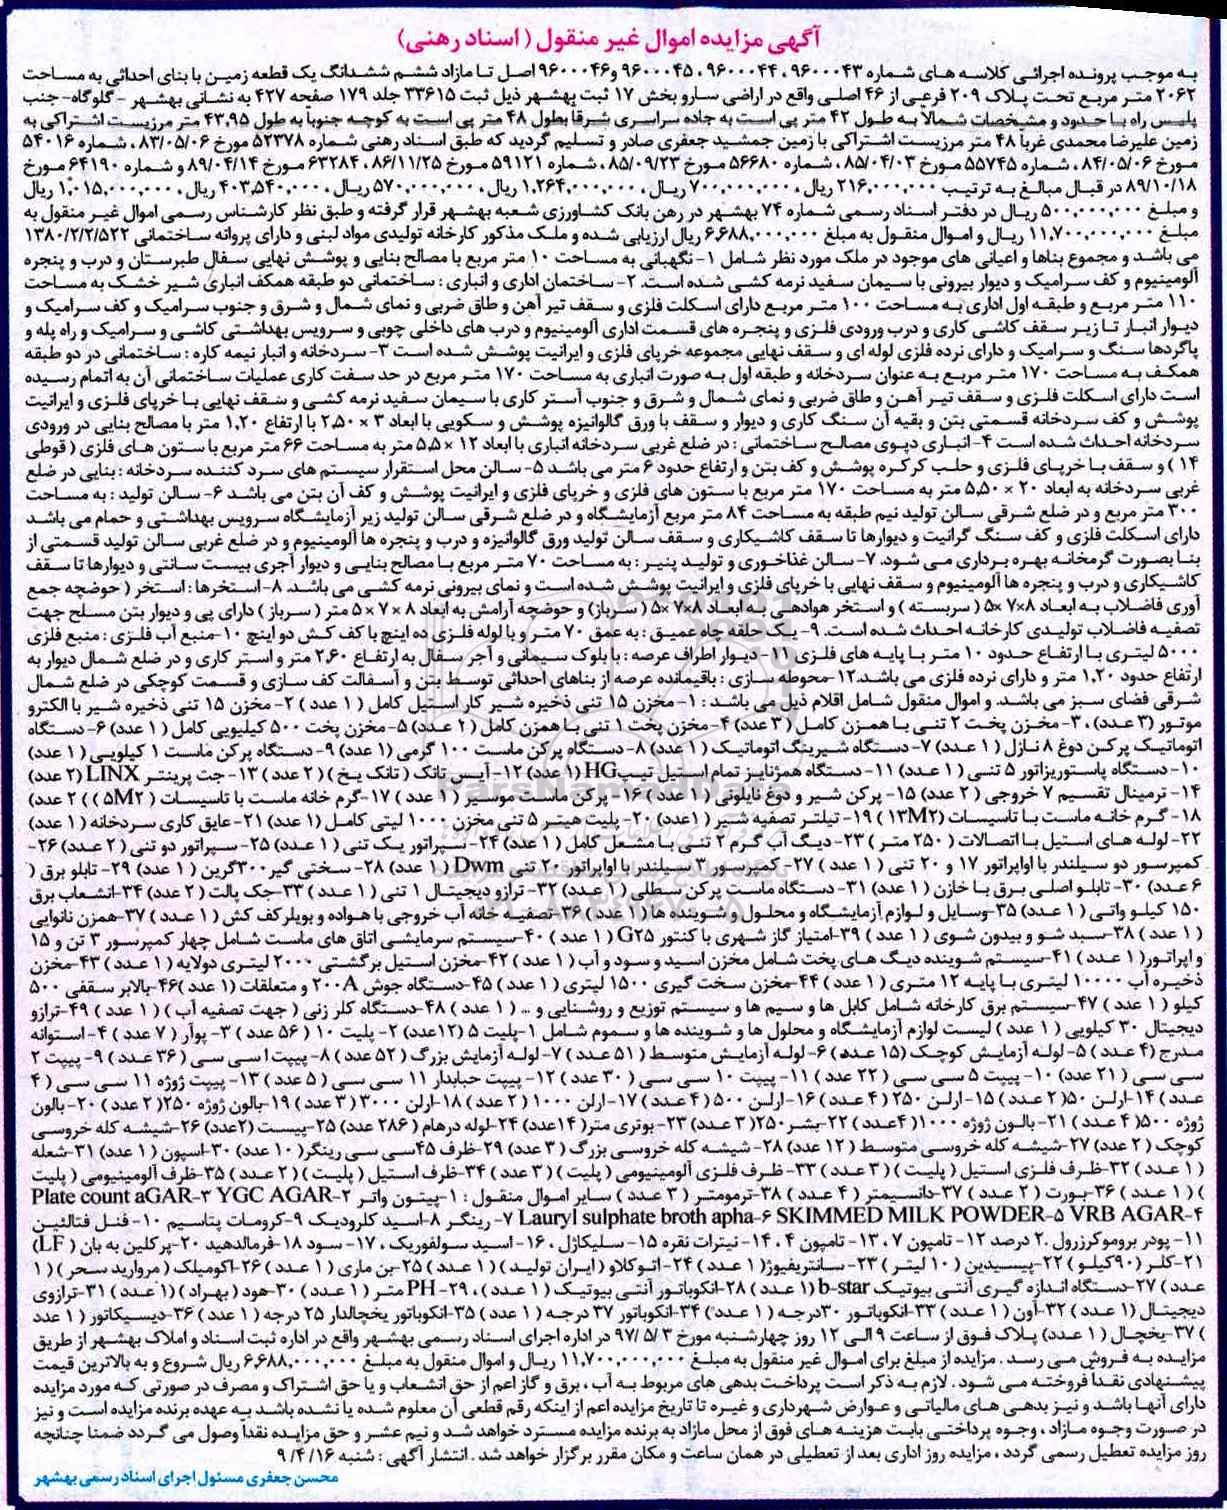 آگهی مزایده اموال غیر منقول (اسناد رهنی)
به موجب پرونده اجرائی کلاسه های شماره ۹۶۰۰۰۴۳، ۹۶۰۰۰۴۴، ۹۶۰۰۰۴۵ و ۹۶۰۰۰۴۶ اصل تا مازاد ششم ششدانگ یک قطعه زمین با بنای احداثی به مساحت
۲۰۶۲ متر مربع تحت پلاک ۲۰۹ فرعی از ۴۶ اصلی واقع در اراضی سارو بخش ۱۷ ثبت بهشهر ذیل ثبت ۳۳۶۱۵ جلد ۱۷۹ صفحه ۴۲۷ به نشانی بهشهر - گلوگاه- جنب
پلیس راه با حدود و مشخصات شمالا به طول ۴۲ متر پی است به جاده سراسری شرقا بطول ۴۸ متر پی است به کوچه جنوبا به طول ۴۳,۹۵ متر مرزیست اشتراکی به
زمین علیرضا محمدی غربا ۴۸ متر مرزیست اشتراکی با زمین جمشید جعفری صادر و تسلیم گردید که طبق اسناد رهنی شماره ۵۲۳۷۸ مورخ ۸۳/۰۵/۰۶، شماره ۵۴۰۱۶
مورخ ۸۴/۰۵/۰۶، شماره ۵۵۷۴۵ مورخ ۸۵/۰۴/۰۳، شماره ۵۶۶۸۰ مورخ ۸۵/۰۹/۲۳، شماره ۵۹۱۲۱ مورخ ۸۶/۱۱/۲۵، ۶۳۲۸۴ مورخ ۸۹/۰۴/۱۴ و شماره ۶۴۱۹۰ مورخ
۸۹/۱۰/۱۸ در قبال مبالغ به ترتیب ۲۱۶,۰۰۰,۰۰۰ ریال، ۷۰۰,۰۰۰,۰۰۰ ریال، ۱,۲۶۴,۰۰۰,۰۰۰ ریال، ۵۷۰,۰۰۰,۰۰۰ ریال، ۴۰۳,۵۴۰,۰۰۰ ریال، ۱,۰۱۵,۰۰۰,۰۰۰ ریال
و مبلغ ۵۰۰,۰۰۰,۰۰۰ ریال در دفتر اسناد رسمی شماره ۷۴ بهشهر در رهن بانک کشاورزی شعبه بهشهر قرار گرفته و طبق نظر کارشناس رسمی اموال غیر منقول به
مبلغ ۱۱,۷۰۰,۰۰۰,۰۰۰ ریال و اموال منقول به مبلغ ۶,۶۸۸,۰۰۰,۰۰۰ ریال ارزیابی شده و ملک مذکور کارخانه تولیدی مواد لبنی و دارای پروانه ساختمانی ۱۳۸۰/۲/۲/۵۲۲
می باشد و مجموع بناها و اعیانی های موجود در ملک مورد نظر شامل ۱- نگهبانی به مساحت ۱۰ متر مربع با مصالح بنایی و پوشش نهایی سفال طبرستان و درب و پنجره
آلومینیوم و کف سرامیک و دیوار بیرونی با سیمان سفید نرمه کشی شده است. ۲- ساختمان اداری و انباری : ساختمانی دو طبقه همکف انباری شیر خشک به مساحت
۱۱۰ متر مربع و طبقه اول اداری به مساحت ۱۰۰ متر مربع دارای اسکلت فلزی و سقف تیر آهن و طاق ضربی و نمای شمال و شرق و جنوب سرامیک و کف سرامیک و
دیوار انبار تا زیر سقف کاشی کاری و درب ورودی فلزی و پنجره های قسمت اداری آلومینیوم و درب های داخلی چوبی و سرویس بهداشتی کاشی و سرامیک و راه پله و
پاگردها سنگ و سرامیک و دارای نرده فلزی لوله ای و سقف نهایی مجموعه خرپای فلزی و ایرانیت پوشش شده است ۳- سردخانه و انبار نیمه کاره : ساختمانی در دو طبقه
همکف به مساحت ۱۷۰ متر مربع به عنوان سردخانه و طبقه اول به صورت انباری به مساحت ۱۷۰ متر مربع در حد سفت کاری عملیات ساختمانی آن به اتمام رسیده
است دارای اسکلت فلزی و سقف تیر آهن و طاق ضربی و نمای شمال و شرق و جنوب آستر کاری با سیمان سفید نرمه کشی و سقف نهایی با خرپای فلزی و ایرانیت
پوشش و کف سردخانه قسمتی بتن و بقیه آن سنگ کاری و دیوار و سقف با ورق گالوانیزه پوشش و سکویی با ابعاد ۳ × ۲,۵۰ با ارتفاع ۱,۲۰ متر با مصالح بنایی در ورودی
سردخانه احداث شده است ۴- انباری دپوی مصالح ساختمانی : در ضلع غربی سردخانه انباری با ابعاد ۱۲ × ۵,۵ متر به مساحت ۶۶ متر مربع با ستون های فلزی ( قوطی
۱۴ ) و سقف با خرپای فلزی و حلب کرکره پوشش و کف بتن و ارتفاع حدود ۶ متر می باشد ۵- سالن محل استقرار سیستم های سرد کننده سردخانه : بنایی در ضلع
غربی سردخانه به ابعاد ۲۰ × ۵,۵۰ متر به مساحت ۱۷۰ متر مربع با ستون های فلزی و خرپای فلزی و ایرانیت پوشش و کف آن بتن می باشد ۶- سالن تولید : به مساحت
۳۰۰ متر مربع و در ضلع شرقی سالن تولید نیم طبقه به مساحت ۸۴ متر مربع آزمایشگاه و در ضلع شرقی سالن تولید زیر آزمایشگاه سرویس بهداشتی و حمام می باشد
دارای اسکلت فلزی و کف سنگ گرانیت و دیوارها تا سقف کاشیکاری و سقف سالن تولید ورق گالوانیزه و درب و پنجره ها آلومینیوم و در ضلع غربی سالن تولید قسمتی از
بنا بصورت گرمخانه بهره برداری می شود. ۷- سالن غذاخوری و تولید پنیر : به مساحت ۷۰ متر مربع با مصالح بنایی و دیوار آجری بیست سانتی و دیوارها تا سقف
کاشیکاری و درب و پنجره ها آلومینیوم و سقف نهایی با خرپای فلزی و ایرانیت پوشش شده است و نمای بیرونی نرمه کشی می باشد. ۸- استخرها : استخر ( حوضچه جمع
آوری فاضلاب به ابعاد ۸×۷ ×۵ ( سربسته ) و استخر هوادهی به ابعاد ۸×۷ ×۵ ( سرباز) و حوضچه آرامش به ابعاد ۸ × ۷ × ۵ متر ( سرباز ) دارای پی و دیوار بتن مسلح جهت
تصفیه فاضلاب تولیدی کارخانه احداث شده است. ۹- یک حلقه چاه عمیق : به عمق ۷۰ متر و با لوله فلزی ده اینچ با کف کش دو اینچ ۱۰- منبع آب فلزی : منبع فلزی
۵۰۰۰ لیتری با ارتفاع حدود ۱۰ متر با پایه های فلزی ۱۱- دیوار اطراف عرصه : با بلوک سیمانی و آجر سفال به ارتفاع ۲,۶۰ متر و استر کاری و در ضلع شمال دیوار به
ارتفاع حدود ۱,۲۰ متر و دارای نرده فلزی می باشد.۱۲- محوطه سازی : باقیمانده عرصه از بناهای احداثی توسط بتن و آسفالت کف سازی و قسمت کوچکی در ضلع شمال
شرقی فضای سبز می باشد. و اموال منقول شامل اقلام ذیل می باشد : ۱- مخزن ۱۵ تنی ذخیره شیر کار استیل کامل ( ۱ عدد ) ۲- مخزن ۱۵ تنی ذخیره شیر با الکترو
موتور (۳ عدد)، ۳- مخزن پخت ۲ تنی با همزن کامل (۳ عدد) ۴- مخزن پخت ۱ تنی با همزن کامل ( ۲ عدد) ۵- مخزن پخت ۵۰۰ کیلیویی کامل ( ۱ عدد) ۶- دستگاه
اتوماتیک پرکن دوغ ۸ نازل ( ۱ عدد) ۷- دستگاه شیرینگ اتوماتیک ( ۱ عدد) ۸- دستگاه پرکن ماست ۱۰۰ گرمی (۱ عدد) ۹- دستگاه پرکن ماست ۱ کیلویی ( ۱ عدد)
۱۰- دستگاه پاستوریزاتور ۵ تنی ( ۱ عدد) ۱۱- دستگاه همژنایز تمام استیل تیپ HG (۱ عدد) ۱۲- آیس تانک ( تانک یخ ) ( ۲ عدد ) ۱۳- جت پرینتر LINX (۲ عدد)
۱۴- ترمینال تقسیم ۷ خروجی ( ۲ عدد) ۱۵- پرکن شیر و دوغ نایلونی ( ۱ عدد ) ۱۶- پرکن ماست موسیر ( ۱ عدد ) ۱۷-گرم خانه ماست با تاسیسات ( ۵M۲ ) ( ۲ عدد )
۱۸- گرم خانه ماست با تاسیسات (۱۳M۲ ) ۱۹- تیلتر تصفیه شیر ( ۱عدد) ۲۰- پلیت هیتر ۵ تنی مخزن ۱۰۰۰ لیتی کامل (۱ عدد) ۲۱- عایق کاری سردخانه (۱ عدد)
۲۲- لوله های استیل با اتصالات ( ۲۵۰ متر ) ۲۳- دیگ آب گرم ۲ تنی با مشعل کامل ( ۱ عدد) ۲۴- سپراتور یک تنی ( ۱ عدد) ۲۵- سپراتور دو تنی ( ۲ عدد) ۲۶-
کمپرسور دو سیلندر با اواپراتور ۱۷ و ۲۰ تنی ( ۱ عدد ) ۲۷- کمپرسور ۳ سیلندر با اواپراتور ۲۰ تنی Dwm ( ۱ عدد) ۲۸- سختی گیر ۳۰۰گرین ( ۱ عدد) ۲۹- تابلو برق (
۶ عدد) ۳۰- تابلو اصلی برق با خازن ( ۱ عدد) ۳۱- دستگاه ماست پرکن سطلی ( ۱ عدد) ۳۲- ترازو دیجیتال ۱ تنی ( ۱ عدد ) ۳۳-جک پالت ( ۲ عدد) ۳۴-انشعاب برق
۱۵۰ کیلو واتی ( ۱ عدد) ۳۵-وسایل و لوازم آزمایشگاه و محلول و شوینده ها ( ۱ عدد) ۳۶-تصفیه خانه آب خروجی با هواده و بویلر کف کش ( ۱ عدد ) ۳۷-همزن نانوایی
( ۱ عدد ) ۳۸-سبد شو و بیدون شوی ( ۱ عدد ) ۳۹-امتیاز گاز شهری با کنتور G۲۵ ( ۱ عدد ) ۴۰-سیستم سرمایشی اتاق های ماست شامل چهار کمپرسور ۳ تن و ۱۵
و اپراتور( ۱ عدد ) ۴۱-سیستم شوینده دیگ های پخت شامل مخزن اسید و سود و آب ( ۱ عدد ) ۴۲-مخزن استیل برگشتی ۲۰۰۰ لیتری دولایه ( ۱ عدد ) ۴۳-مخزن
ذخیره آب ۱۰۰۰۰ لیتری با پایه ۱۲ متری ( ۱ عدد ) ۴۴-مخزن سخت گیری ۱۵۰۰ لیتری ( ۱ عدد ) ۴۵-دستگاه جوش ۲۰۰A و متعلقات (۱ عدد )۴۶-بالابر سقفی ۵۰۰
کیلو ( ۱ عدد ) ۴۷-سیستم برق کارخانه شامل کابل ها و سیم ها و سیستم توزیع و روشنایی و ... ( ۱ عدد ) ۴۸-دستگاه کلر زنی ( جهت تصفیه آب ) ( ۱ عدد ) ۴۹-ترازو
دیجیتال ۳۰ کیلویی ( ۱ عدد ) لیست لوازم آزمایشگاه و محلول ها و شوینده ها و سموم شامل ۱-پلیت ۵ (۱۲عدد) ۲- پلیت ۱۰ ( ۵۶ عدد ) ۳- پوآر ( ۷ عدد ) ۴- استوانه
مدرج (۴ عدد ) ۵- لوله آزمایش کوچک (۱۵ عدد) ۶- لوله آزمایش متوسط ( ۵۱ عدد ) ۷- لوله آزمایش بزرگ ( ۵۲ عدد ) ۸- پیپت ۱سی سی ( ۳۶ عدد ) ۹- پیپت ۲
سی سی ( ۲۱ عدد) ۱۰- پیپت ۵ سی سی ( ۲۲ عدد ) ۱۱- پیپت ۱۰ سی سی ( ۳۰ عدد ) ۱۲- پیپت حبابدار ۱۱ سی سی ( ۵ عدد ) ۱۳- پیپت ژوژه ۱۱ سی سی ( ۴
عدد ) ۱۴-ارلن ۵۰( ۲ عدد ) ۱۵-ارلن ۲۵۰ ( ۴ عدد ) ۱۶-ارلن ۵۰۰ ( ۴ عدد ) ۱۷-ارلن ۱۰۰۰ ( ۲ عدد ) ۱۸-ارلن ۳۰۰۰ ( ۳ عدد ) ۱۹-بالون ژوژه ۲۵۰( ۲ عدد ) ۲۰-بالون
ژوژه ۵۰۰( ۴ عدد ) ۲۱-بالون ژوژه ۱۰۰۰( ۴عدد ) ۲۲-بشر۲۵۰( ۳ عدد) ۲۳-بوتری متر( ۱۴عدد) ۲۴-لوله درهام ( ۲۸۶ عدد) ۲۵-پیست (۲عدد) ۲۶-شیشه کله خروسی
کوچک ( ۲ عدد) ۲۷-شیشه کله خروسی متوسط ( ۱۲ عدد) ۲۸-شیشه کله خروسی بزرگ ( ۳ عدد) ۲۹-ظرف ۴۵سی سی رینگر( ۱۰ عدد) ۳۰-اسپون ( ۱ عدد) ۳۱-شعله
( ۱ عدد ) ۳۲-ظرف فلزی استیل ( پلیت ) ( ۳ عدد ) ۳۳- ظرف فلزی آلومینیومی ( پلیت ) ( ۳ عدد ) ۳۴-ظرف استیل ( پلیت ) ( ۲ عدد ) ۳۵-ظرف آلومینیومی ( پلیت
) ( ۱ عدد ) ۳۶-بورت ( ۲ عدد ) ۳۷-دانسیمتر ( ۴ عدد ) ۳۸-ترمومتر ( ۳ عدد ) سایر اموال منقول : ۱-پپتون واتر ۲-YGC AGAR ۳-Plate count aGAR
۴-VRB AGAR ۵-SKIMMED MILK POWDER ۶-Lauryl sulphate broth apha ۷- رینگر ۸-اسید کلرودیک ۹-کرومات پتاسیم ۱۰- فنل فتالئین
۱۱- پودر بروموکرزرول ۲۰ درصد ۱۲- تامپون ۷، ۱۳- تامپون ۴، ۱۴- نیترات نقره ۱۵- سلیکاژل، ۱۶- اسید سولفوریک، ۱۷- سود ۱۸-فرمالدهید ۲۰-پرکلین به بان ( LF)
۲۱-کلر (۹۰کیلو ) ۲۲-پیسیدین ( ۱۰ لیتر) ۲۳- سانتریفیوژ( ۱ عدد ) ۲۴- اتوکلاو ( ایران تولید) ( ۱ عدد ) ۲۵-بن ماری ( ۱ عدد ) ۲۶-اکومیلک ( مروارید سحر ) ( ۱
عدد ) ۲۷-دستگاه اندازه گیری آنتی بیوتیک b-star (۱ عدد) ۲۸-انکوباتور آنتی بیوتیک ( ۱ عدد)، ۲۹- PH متر ( ۱ عدد) ۳۰-هود ( بهراد) (۱ عدد) ۳۱-ترازوی
دیجیتال (۱ عدد) ۳۲-آون ( ۱ عدد) ۳۳-انکوباتور ۳۰درجه ( ۱ عدد) ۳۴-انکوباتور ۳۷ درجه ( ۱ عدد) ۳۵-انکوباتور یخچالدار ۲۵ درجه ( ۱ عدد) ۳۶-دیسیکاتور (۱ عدد
) ۳۷-یخچال ( ۱ عدد) پلاک فوق از ساعت ۹ الی ۱۲ روز چهارشنبه مورخ ۹۷/۵/۳ در اداره اجرای اسناد رسمی بهشهر واقع در اداره ثبت اسناد و املاک بهشهر از طریق
مزایده به فروش می رسد. مزایده از مبلغ برای اموال غیر منقول به مبلغ ۱۱,۷۰۰,۰۰۰,۰۰۰ ریال و اموال منقول به مبلغ ۶,۶۸۸,۰۰۰,۰۰۰ ریال شروع و به بالاترین قیمت
پیشنهادی نقدا فروخته می شود. لازم به ذکر است پرداخت بدهی های مربوط به آب، برق و گاز اعم از حق انشعاب و یا حق اشتراک و مصرف در صورتی که مورد مزایده
دارای آنها باشد و نیز بدهی های مالیاتی و عوارض شهرداری و غیره تا تاریخ مزایده اعم از اینکه رقم قطعی آن معلوم شده یا نشده باشد به عهده برنده مزایده است و نیز
در صورت وجوه مازاد، وجوه پرداختی بابت هزینه های فوق از محل مازاد به برنده مزایده مسترد خواهد شد و نیم عشر و حق مزایده نقدا وصول می گردد ضمنا چنانچه
روز مزایده تعطیل رسمی گردد، مزایده روز اداری بعد از تعطیلی در همان ساعت و مکان مقرر برگزار خواهد شد. انتشار آگهی : شنبه ۹/۴/۱۶
محسن جعفری مسئول اجرای اسناد رسمی بهشهر